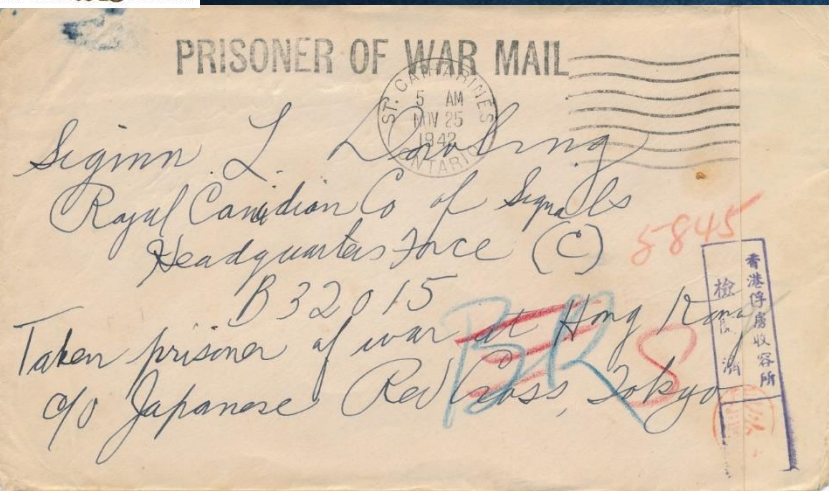 PRISONER OF WAR MAIL
ST. CATHARINES
5 AM
NOV 25
1942
ONTARIO
Sigmn L Dowling
Royal Canadian Co of Signals
Headquarters Force (C)
B32015
Taken prisoner of war at Hong Kong
c/o Japanese Red Cross, Tokyo
5845
BR
8
香港俘虜收容所
檢閱濟